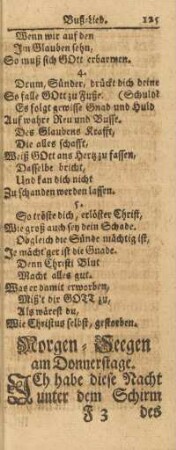 Buß-Lied. 125
Wenn wir auf den
Im Glauben sehn,
So muß sich GOtt erbarmen.
4.
Drum, Sünder, drückt dich deine
So falle GOtt zu Fuße. (Schuld?
Es folgt gewisse Gnad und Huld
Auf wahre Reu und Busse.
Des Glaubens Krafft,
Die alles schafft,
Weiß GOtt ans Hertz zu fassen,
Dasselbe bricht,
Und kan dich nicht
Zu schanden werden lassen.
5.
So tröste dich, erlöster Christ,
Wie groß auch sey dein Schade.
Obgleich die Sünde mächtig ist,
Je mächt'ger ist die Gnade.
Denn Christi Blut
Macht alles gut.
Was er damit erworben,
Mißt dir GOTT zu,
Als wärest du,
Wie Christus selbst, gestorben.
Morgen-Seegen
am Donnerstage.
ICh habe diese Nacht
unter dem Schirm
F 3 des